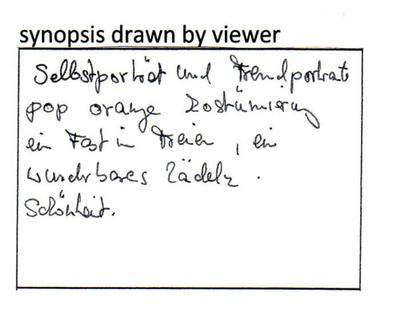 synopsis drawn by viewer
Selbstporträt und Fremdportrait
pop orange Kostümierung
ein Fast in Freien, ein
wunderbares Lädeln.
Schönheit.